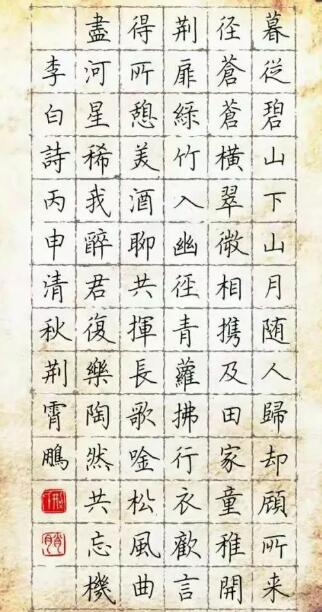 暮従碧山下山月随人歸却顧所来
径蒼蒼橫翠微相携及田家童稚開
荆扉綠竹入幽徑青蘿拂行衣歡言
得所憩美酒聊共揮長歌唫松風曲
盡河星稀我醉君復樂陶然共忘機
李白詩丙申清秋荆霄鵬